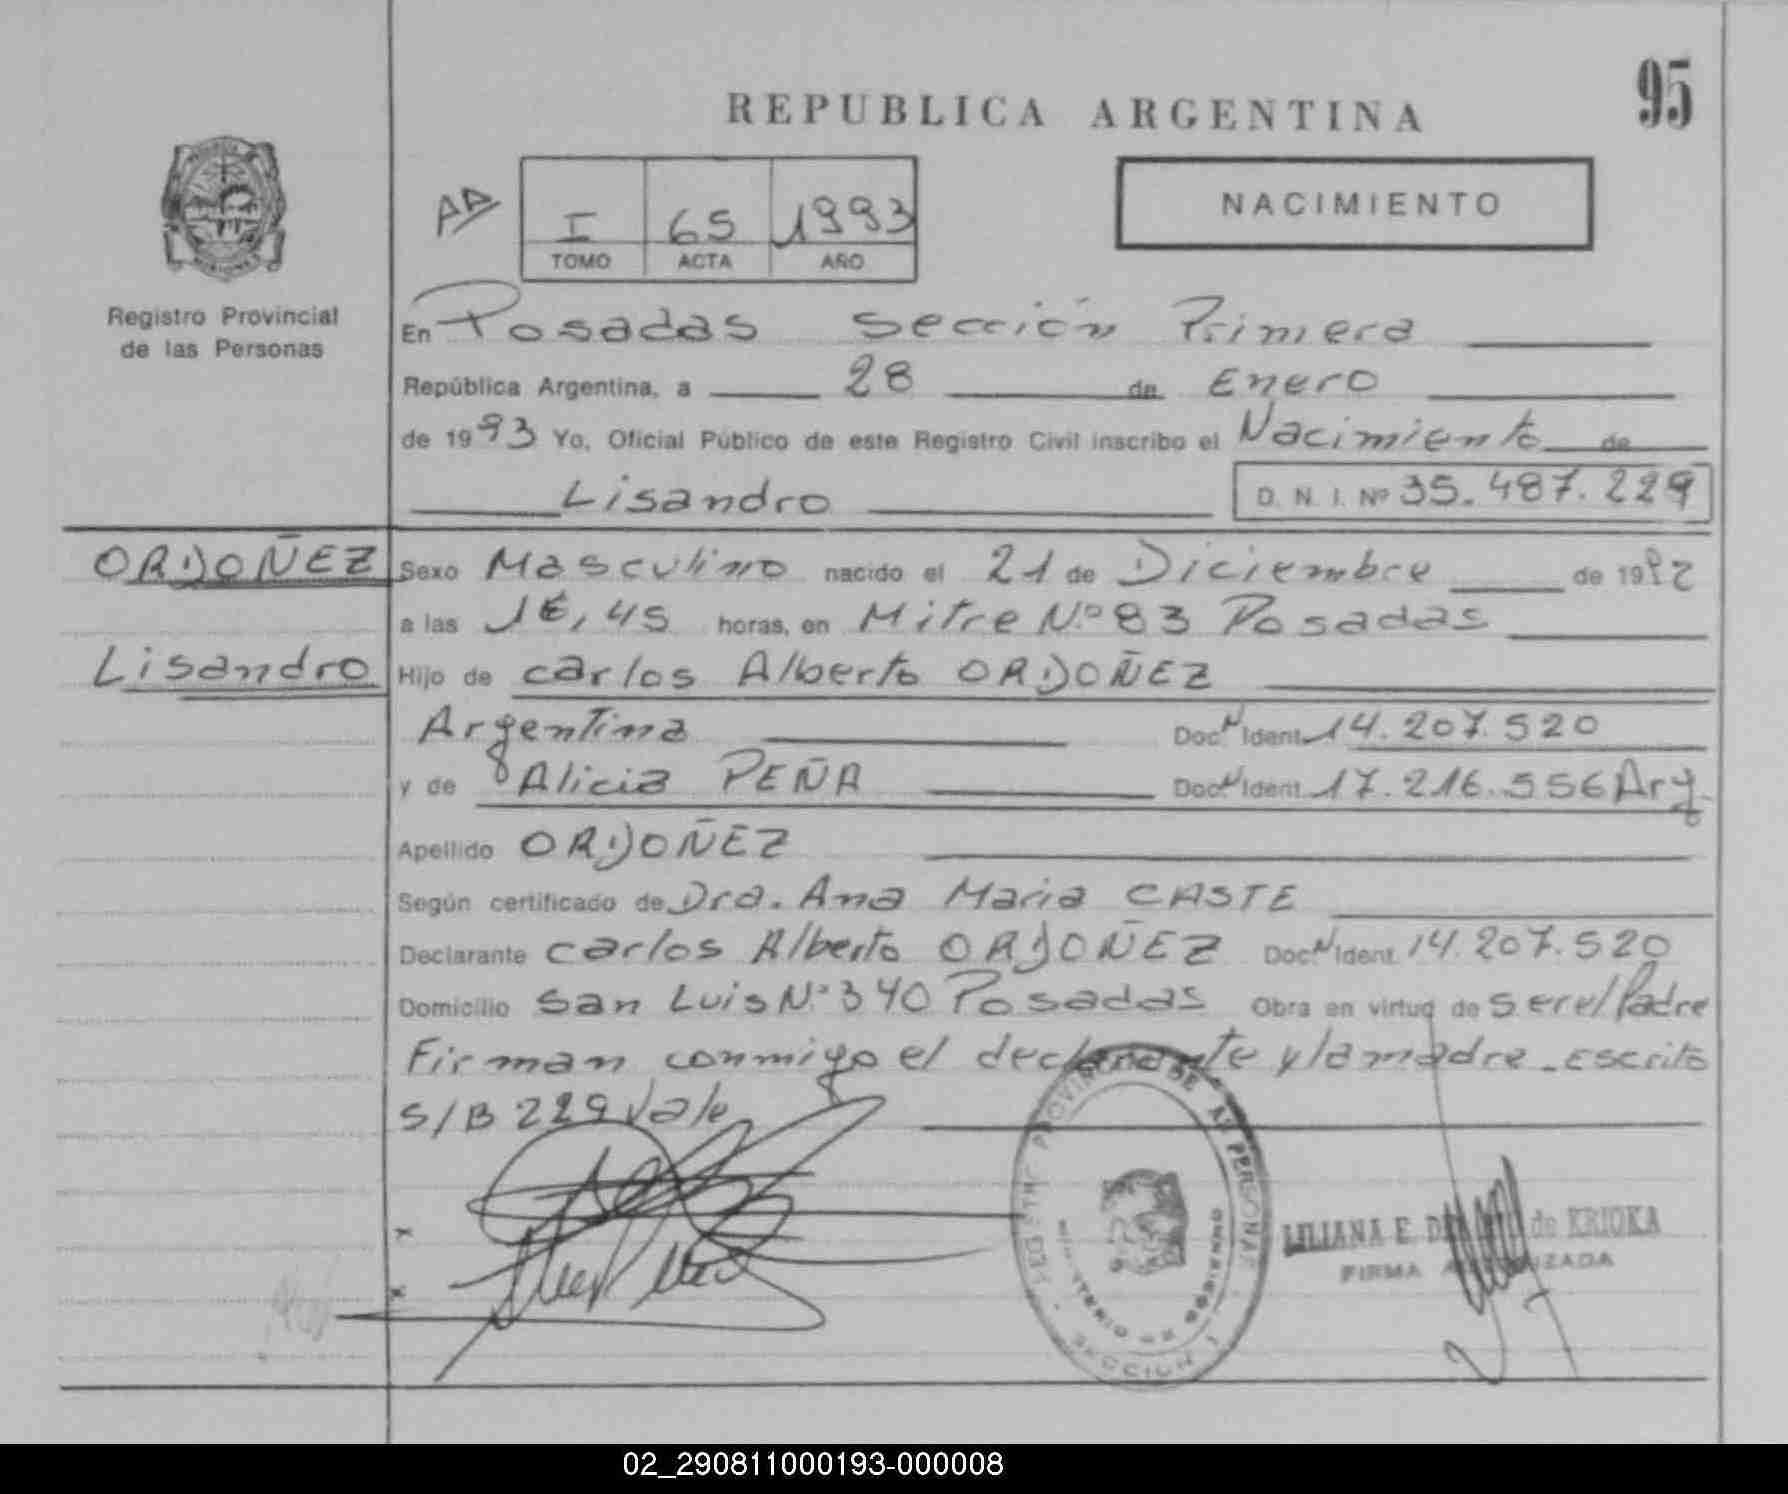 95
REPUBLICA ARGENTINA
I 65 1993
TOMO ACTA AÑO
NACIMIENTO
Registro Provincial
de las Personas
En Posadas sección Primera
República Argentina, a 28 de Enero
de 1993 Yo, Oficial Público de este Registro Civil inscribo el Nacimiento de
Lisandro D. N. I. Nº 35.487.229
ORDOÑEZ
Lisandro
Sexo Masculino nacido el 21 de Diciembre de 1992
a las 16,45 horas, en Mitre N.º 83 Posadas
Hijo de carlos Alberto ORDOÑEZ
Argentina Doc. N Ident. 14.207.520
y de Alicia PEÑA Doc. N Ident. 17.216.556 Arg.
Apellido ORDOÑEZ
Según certificado de Dra. Ana Maria CASTE
Declarante carlos Alberto ORDOÑEZ Doc. N Ident. 14.207.520
Domicilio san Luis N.º 340 Posadas Obra en virtud de ser el Padre
Firman conmigo el declarante y la madre. Escrito
S/B 229 Vale
x
x
REGISTRO PROVINCIAL DE LAS PERSONAS
MINISTERIO DE GOBIERNO
SECCION 1
LILIANA E. de KRIOKA
FIRMA AUTORIZADA
02_290811000193-000008